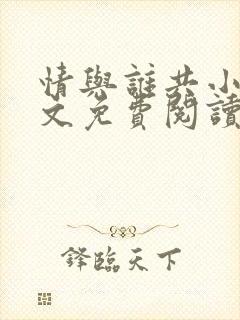 情與誰共小
文免費閱讀
鋒臨天下